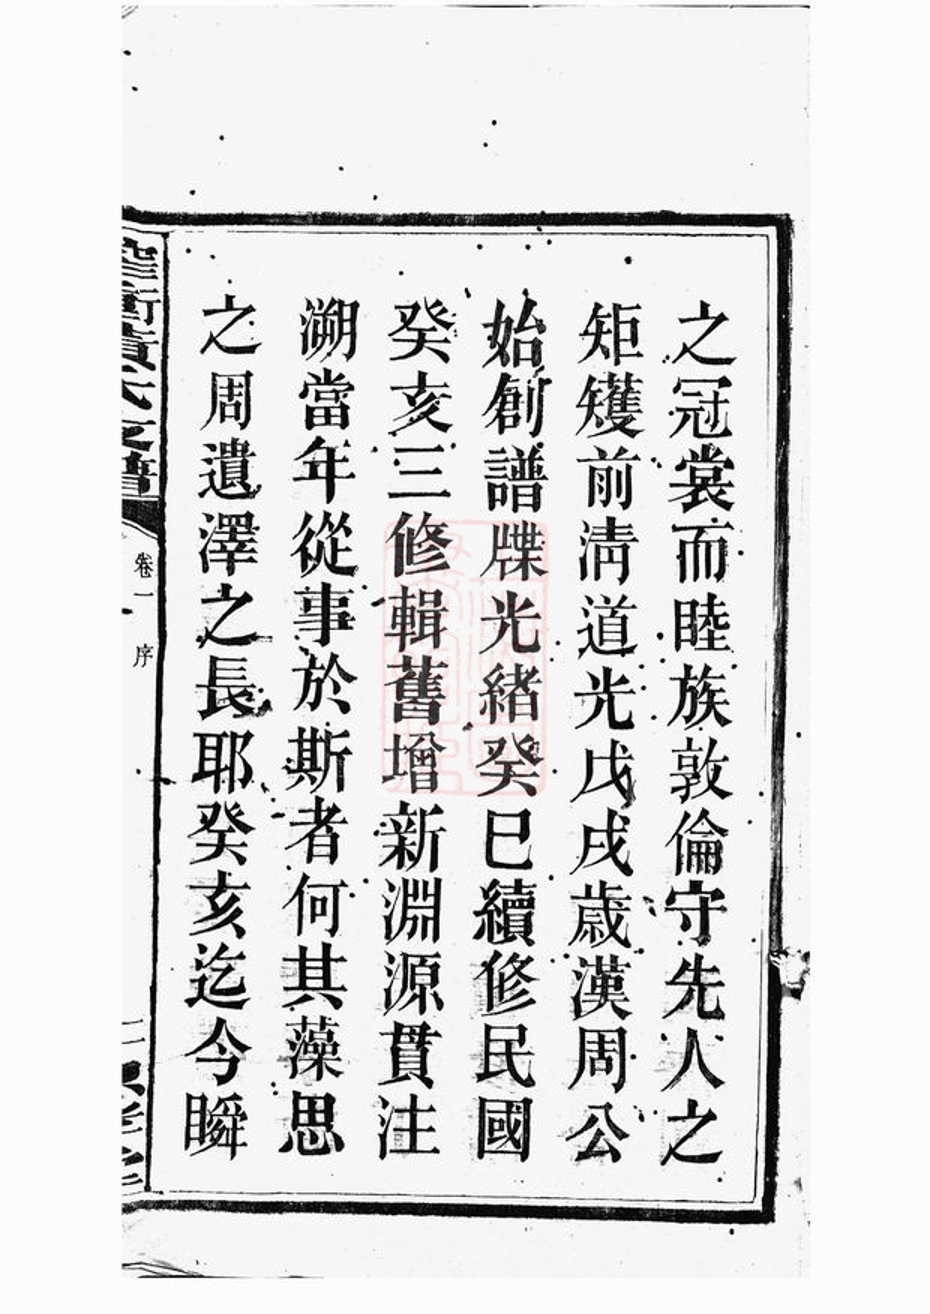 之冠裳而睦族敦倫守先人之
矩矱前淸道光戊戌歲漢周公
始創譜牒光緒癸巳續修民國
癸亥三修輯舊增新淵源貫注
溯當年從事於斯者何其藻思
之周遺澤之長耶癸亥迄今瞬
卷一
序
二